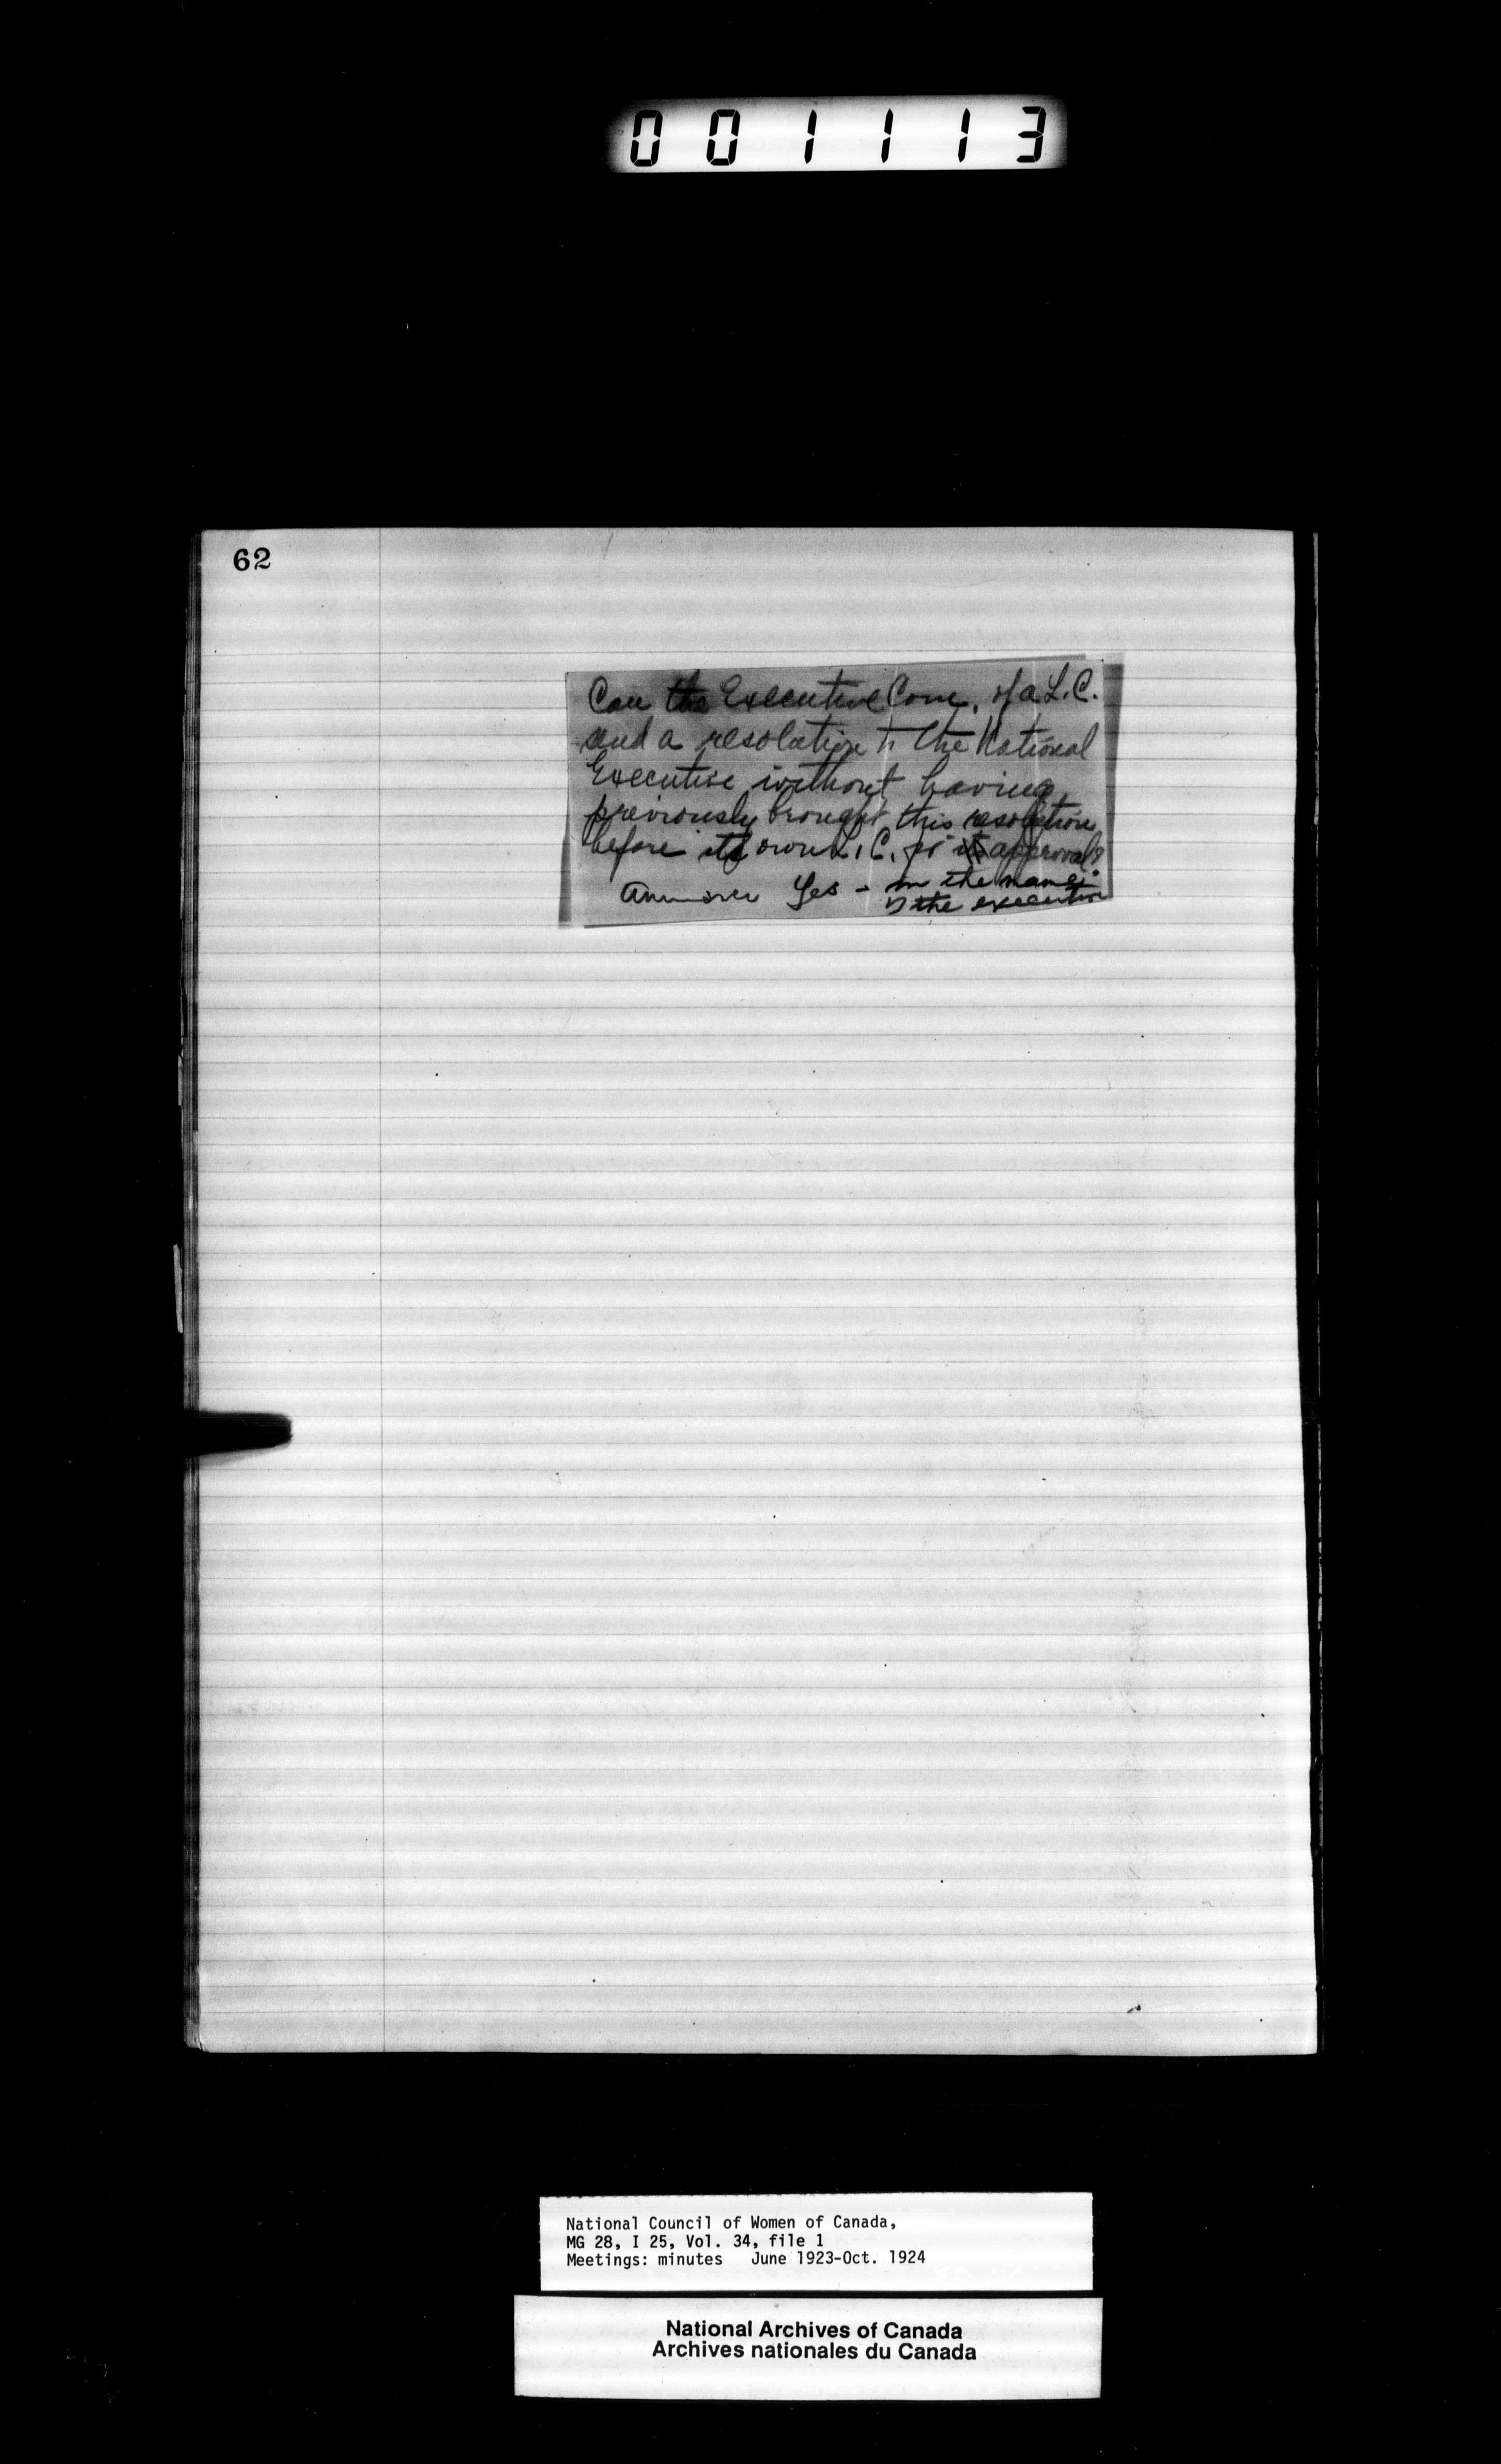 001113
62
Can the Executive Com. of a L.C.
send a resolution to the National
Executive without having
previously brought this resolution
before its own L.C. for its approval?
Answer Yes - in the name
of the executive
National Council of Women of Canada,
MG 28, I 25, Vol. 34, file 1
Meetings: minutes June 1923-Oct. 1924
National Archives of Canada
Archives nationales du Canada